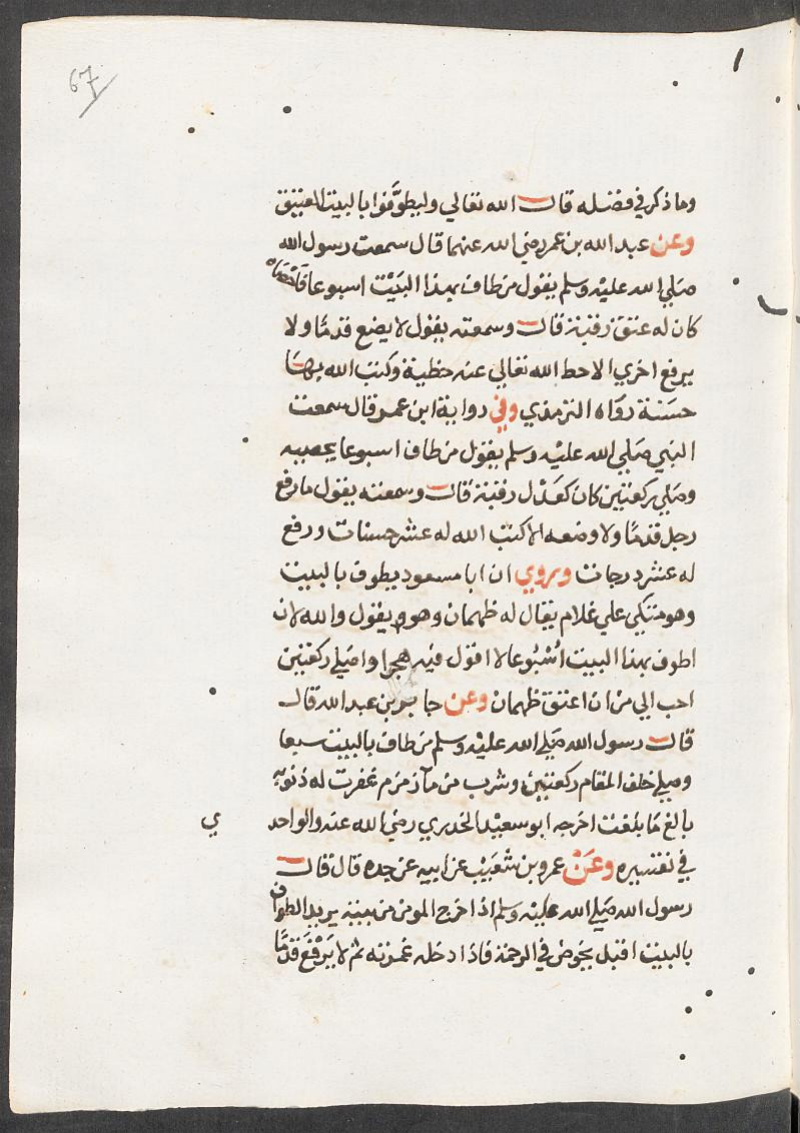 67
وما ذكر في فضله قال الله تعالي وليطوَّفوا بالبيت العتيق
وعن عبد الله بن عمر رضي الله عنهما قال سمعت رسول الله
صَلي الله عليه وسلم يقول من طاف بهذا البَيْت اسبوعا فاحصَاه
كان له عتق رقبة قال وسمعته يقول لا يضع قدمًا ولا
يرفع اخري الا حط الله تعالي عنه خطية وكتب الله بهَا
حسَنة روَاه الترمذي وفي رواية ابن عمر قال سمعت
النبي صَلي الله عليه وسلم يقول من طاف اسبوعا يحصيه
وصَلي ركعتين كان كعَدْل رقبة قال وسمعته يقول ما رفع
رجل قدمًا ولا وضعه الا كتب الله له عشر حسنات ورفع
له عشر درجات ويروي ان ابا مسعود يطوف بالبيت
وهو متكي علي غلام يقال له ظهمان وهو يقول والله لان
اطوف بهذا البيت أسْبُوعا لا اقول فيه هجرا واصَلي ركعتين
احب الي من ان اعتق ظهمان وعن جابر بن عبد الله قال
قال رسول الله صَلي الله عليه وسلم من طاف بالبيت سبعا
وصلي خلف المقام ركعتين وشرب من مآ زمزم غفرت له ذنوبه
بالغ مَا بلغت اخرجه ابو سعيد الخدري رضي الله عنه والواحد
ي
في تفسيره وعَنْ عمرو بن شعَيْب عن ابيه عن جده قال قال
رسول الله صَلي الله عليه وسلم اذا خرج المومن من بيته يريد الطواف
بالبيت اقبل يخوض في الرحمة فاذا دخله غمرته ثم لا يَرْفَع قدمًا